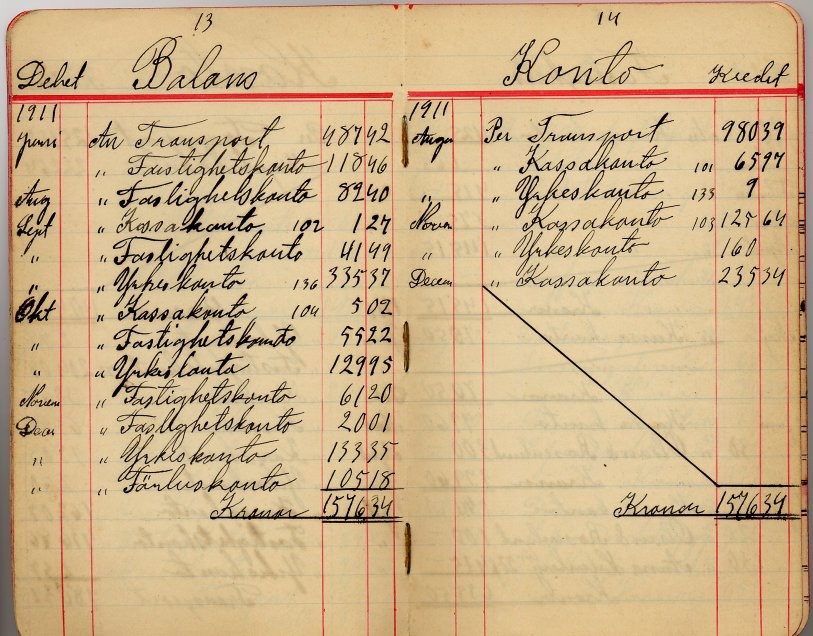 13
Debet Balans
1911
Juni An Transport 487 42
" Fastighetskonto 118 46
Aug " Fastighetskonto 82 40
Sept " Kassakonto 102 1 27
" " Fastighetskonto 41 49
" " Yrkeskonto 136 335 37
Okt " Kassakonto 104 5 02
" " Fastighetskonto 55 22
" " Yrkeskonto 129 95
Novem " Fastighetskonto 61 20
Decem " Fastighetskonto 20 01
" " Yrkeskonto 133 35
" " Förluskonto 105 18
Kronor 1576 34
14
Konto Kredit
1911
Augu Per Transport 980 39
" Kassakonto 101 65 97
" " Yrkeskonto 133 9
Novem " Kassakonto 103 125 64
" " Yrkeskonto 160
Decem " Kassakonto 235 34
Kronor 1576 34